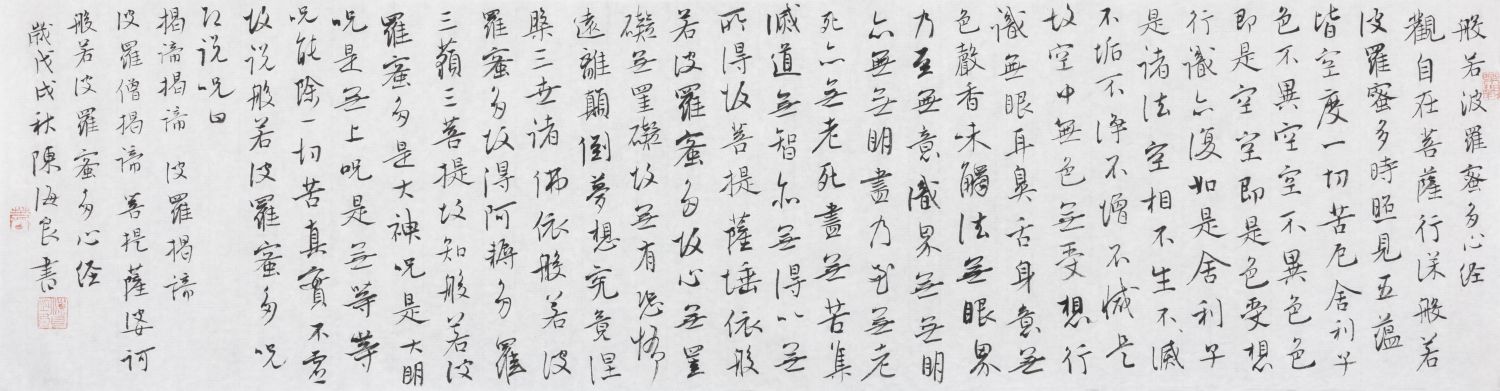 般若波羅蜜多心经
觀自在菩薩行深般若
波羅蜜多時照見五蘊
皆空度一切苦厄舍利子
色不異空空不異色色
即是空空即是色受想
行識亦復如是舍利子
是诸法空相不生不滅
不垢不淨不增不減是
故空中無色无受想行
識無眼耳鼻舌身意无
色聲香味觸法无眼界
乃至無意識界无無明
亦無无明盡乃至无老
死亦无老死盡无苦集
滅道无智亦无得以无
所得故菩提薩埵依般
若波羅蜜多故心无罣
礙无罣礙故无有恐怖
遠離顛倒夢想究竟涅
槃三世诸佛依般若波
羅蜜多故得阿耨多羅
三藐三菩提故知般若波
羅蜜多是大神咒是大明
咒是无上咒是无等等
咒能除一切苦真實不虚
故说般若波羅蜜多咒
即说咒曰
揭谛揭谛 波羅揭谛
波羅僧揭谛 菩提薩婆訶
般若波羅蜜多心经
歲戊戌秋陳海良書